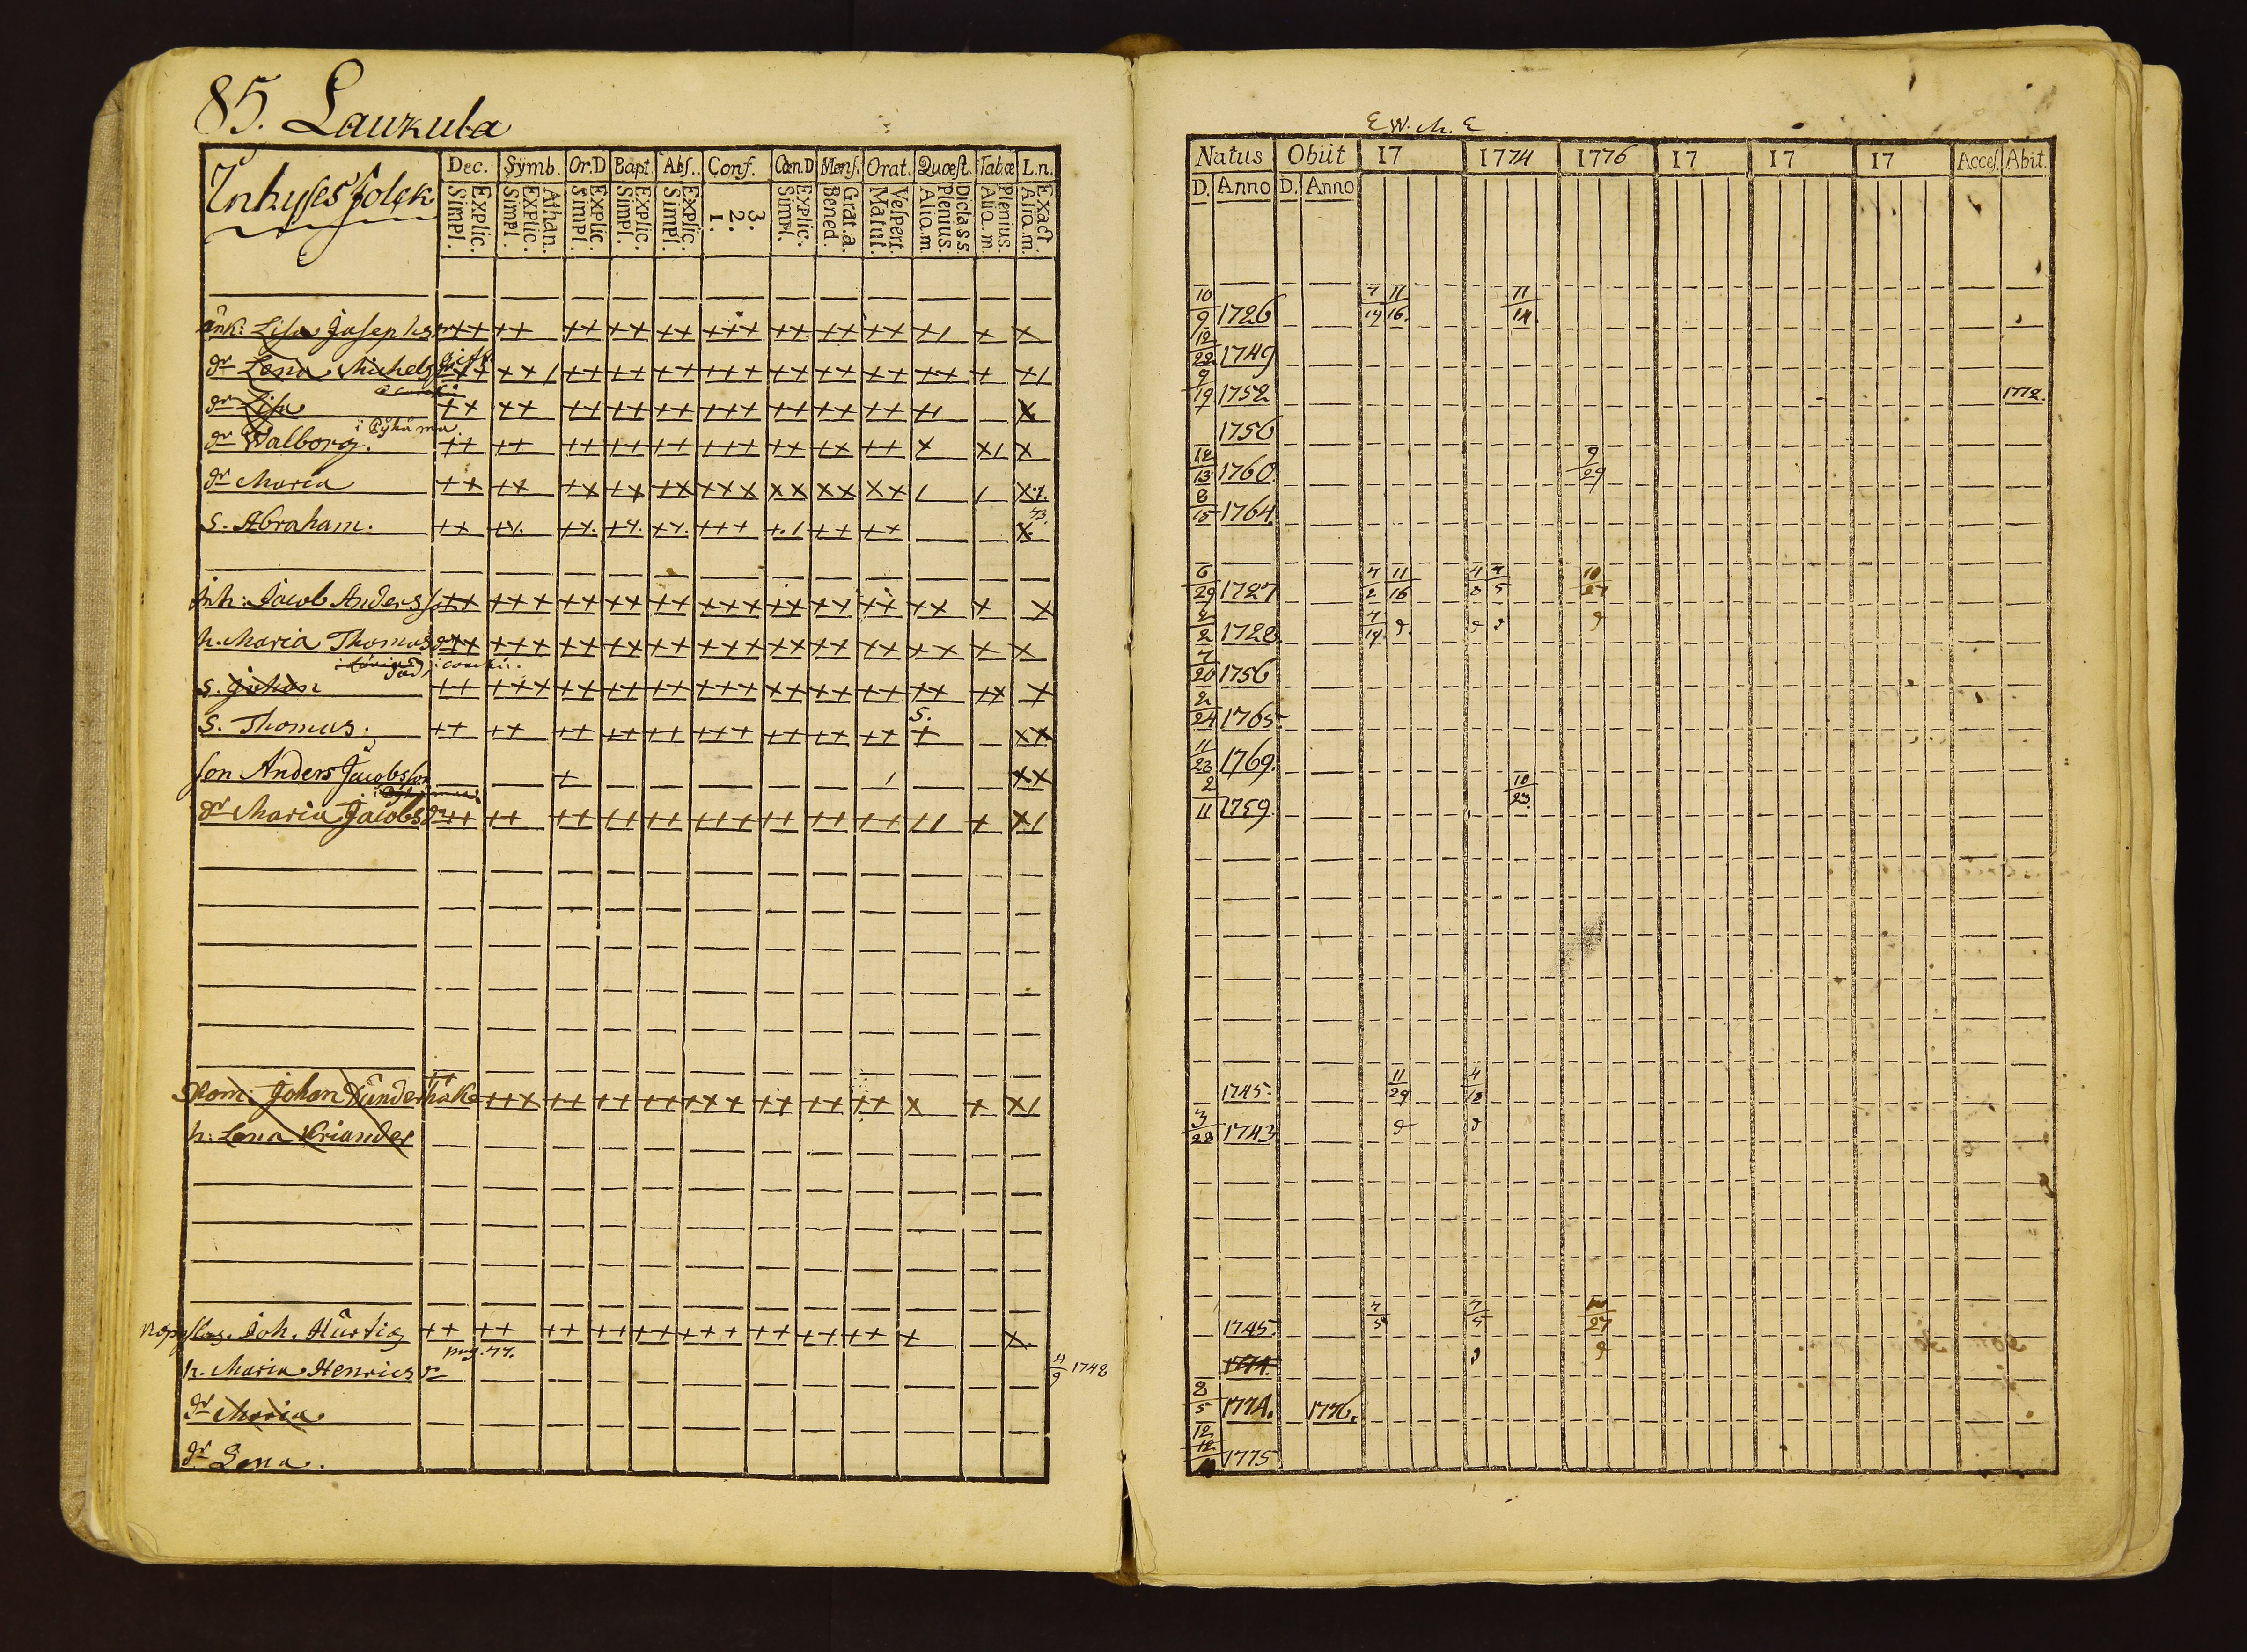 85. Laukula
Inhyses folck
Dec. Symb. Or.D Bapt. Abs. Conf. Cæn.D Mens. Orat. Quæst. Tabæ L.n.
Simpl. Explic. Simpl. Explic. Athan. Simpl. Explic. Simpl. Explic. Simpl. Explic. 1. 2. 3. Simpl. Explic. Bened. Grat.a. Matut. Vespert. Aliq.m. Plenius. Dicta.s.s Aliq.m. Plenius. Aliq.m. Exact.
änk: Lisa Josephsdr ++ ++ ++ ++ ++ +++ ++ ++ ++ +/ + x
gift
dr Lena Michelsdr ++ ++/ ++ ++ ++ +++ ++ ++ ++ ++ + x/
dr Lisa ++ ++ ++ ++ ++ +++ ++ ++ ++ +/ x
i Pyhäma.
dr Walborg. ++ ++ ++ ++ ++ +++ ++ ++ ++ x x/ x
dr Maria ++ ++ ++ ++ ++ +++ xx xx xx / / x/.
73.
S. Abraham. ++ +/. +/. +/. +/. +++ +./ ++ ++ x.
Inh: Jacob Andersson ++ +++ ++ ++ ++ +++ ++ ++ ++ ++ + x
h. Maria Thomasdr ++ +++ ++ ++ ++ +++ ++ ++ ++ ++ + x
S. Johan ++ +++ ++ ++ ++ +++ ++ ++ ++ ++ ++ x
5.
S. Thomas. ++ ++ ++ ++ ++ +++ ++ ++ ++ + xx
son Anders Jacobsson + / xx
dr Maria Jacobsdr ++ ++ ++ ++ ++ +++ ++ ++ ++ // + x/
Skom: Johan Dunderhake ++ +++ ++ ++ ++ +++ ++ ++ ++ x + x/
h: Lena Kriander
Joh. Hurtig ++ ++ ++ ++ ++ +++ ++ ++ ++ + x.
h. Maria Henricsdr 4/9 1748
dr Maria
dr Lena.
E W. M. E
Natus Obiit 17 1774 1776 17 17 17 Acces. Abit.
D. Anno D. Anno
10/9 1726 7/19 11/16. 11/14.
12/22 1749
9/19 1752 1772.
1756
12/13 1760. 9/29
8/15 1764.
6/29 1727 4/2 11/16 4/8 4/5 10/27
2/2 1728. 7/19
7/20 1756
2/24 1765
11/23 1769.
2/11 1759. 10/23.
1745. 11/29 4/18
3/28 1743
1745. 7/5 7/5 10/27
1774.
8/5 1774. 1776.
12/12 1775